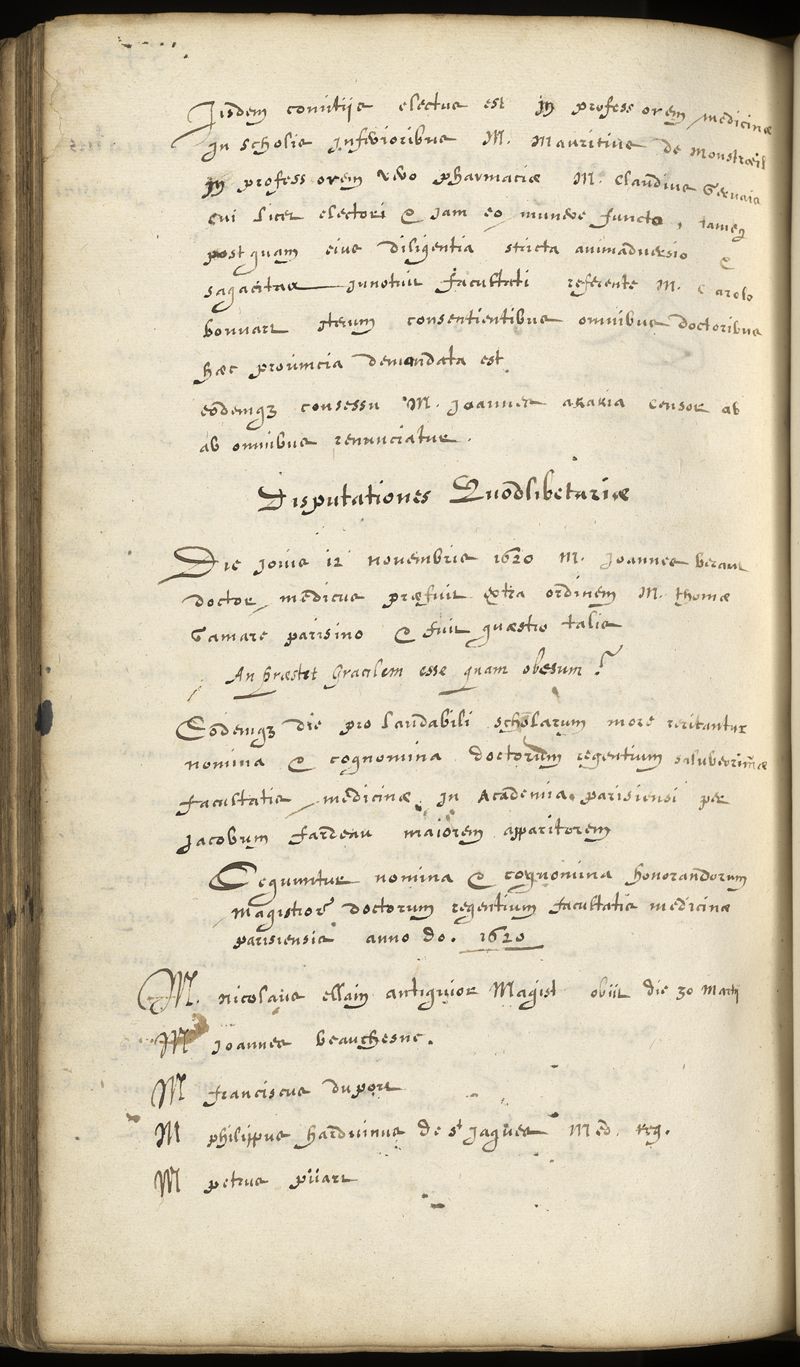 Iisdem comitiis electus est in professorem medicinæ
in scholis inferioribus M. Mauritius de Monstræil
in professorem vero pharmaciæ M. Claudius Gervais
cui licet electori & jam eo munere functo, tamen
postquam eius diligentia stricta animadversio &
sagacitas innotuit facultati referente M. Carolo
bouvart iterum consentientibus omnibus doctoribus
hæc provincia demandata est
eodemq3 consessu M. Joannes akakia censor ab
ab omnibus renunciatur.
Disputationes Quodlibetariæ
Die Jovis 12 novembris 1620 M. Joannes beraut
doctor medicus præfuit extra ordinem M. thomæ
Gamare parisino & fuit quæstio talis
An præstet Gracilem esse quam obesum?
Eodemq3 die pro laudabili scholarum more recitantur
nomina & cognomina doctorum regentium saluberrimæ
facultatis medicinæ in Academia parisiensi per
Jacobum fardeau maiorem apparitorem
Sequuntur nomina & cognomina honorandorum
magistror doctorum regentium facultatis medicinæ
parisiensis anno do. 1620
M. nicolaus ellain antiquior Magist obiit die 30 Martij
M Joannes beauchesne.
M franciscus duport
M philippus harduinus de st Jaques Med. reg.
M petrus pijart